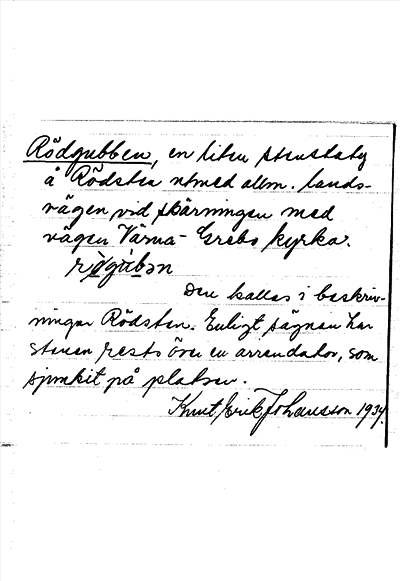 Rödgubben, en liten stenstaty
å Rödsten utmed allm. lands-
vägen vid skärningen med
vägen Värna - Grebo kyrka.
rògúbən
Den kallas i beskriv-
ningar Rödsten. Enligt sägnen har
stenen rests över en arrendator, som
sjunkit på platsen.
Knut Erik Johansson 1934.